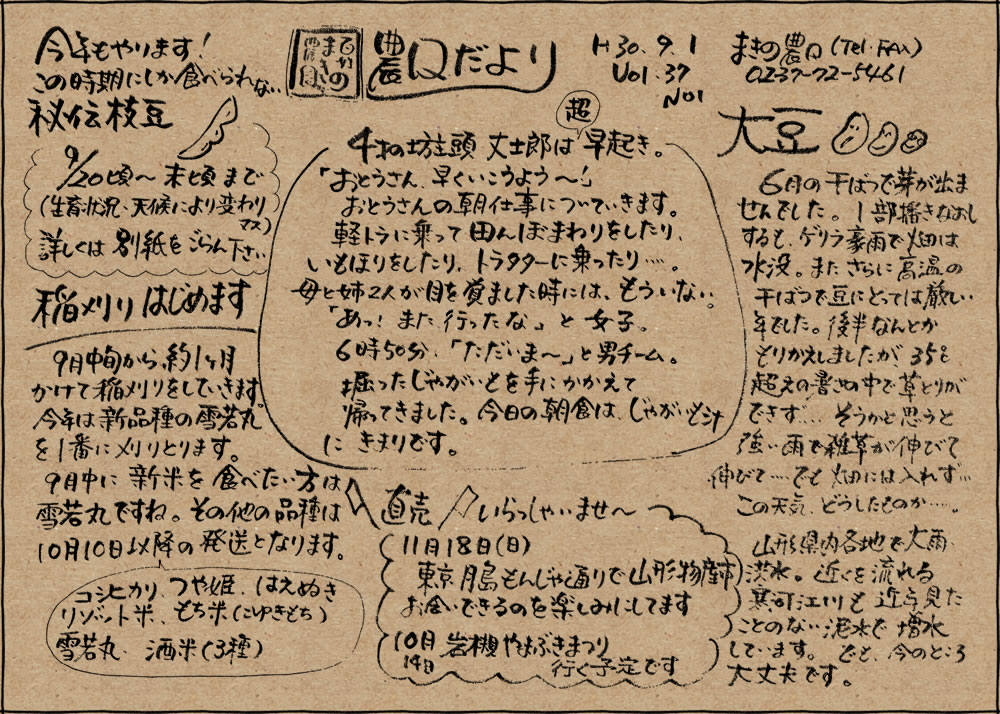 今年もやります!
この時期にしか食べられない
秘伝枝豆
9/20頃〜末頃まで
(生育状況、天候により変わります)
詳しくは別紙をごらん下さい
稲刈りはじめます
9月中旬から約1ヶ月
かけて稲刈りをしていきます。
今年は新品種の雪若丸
を1番に刈りとります。
9月中に新米を食べたい方は
雪若丸ですね。その他の品種は
10月10日以降の発送となります。
コシヒカリ、つや姫、はえぬき
リゾット米、もち米(こゆきもち)
雪若丸、酒米(3種)
まきの
農Qだより
H30.9.1
Vol.37
No1
まきの農口(Tel・FAX)
0237-72-5461
超
4才の坊主頭 丈士郎は早起き。
「おとうさん、早くいこうよう〜!」
おとうさんの朝仕事についていきます。
軽トラに乗って田んぼまわりをしたり、
いもほりをしたり、トラクターに乗ったり……。
母と姉2人が目を覚ました時には、もういない。
「あっ!また行ったな。」と女子。
6時50分、「ただいま〜」と男チーム。
掘ったじゃがいもを手にかかえて
帰ってきました。今日の朝食は、じゃがいも汁
にきまりです。
直売 いらっしゃいませ〜
11月18日(日)
東京月島もんじゃ通りで山形物産市
お会いできるのを楽しみにしてます
10月14日 岩槻やまぶきまつり
行く予定です
大豆
6月の干ばつで芽が出ま
せんでした。1部播きなおし
すると、ゲリラ豪雨で畑は
水没。またさらに高温の
干ばつで豆にとっては厳しい
年でした。後半なんとか
もりかえしましたが、35℃
超えの暑さの中で草とりが
できず… そうかと思うと
強い雨で雑草が伸びて
伸びて……でも畑には入れず…
この天気、どうしたものか……。
山形県内各地で大雨
洪水。近くを流れる
寒河江川も近年見た
ことのない泥水で増水
しています。でも、今のところ
大丈夫です。